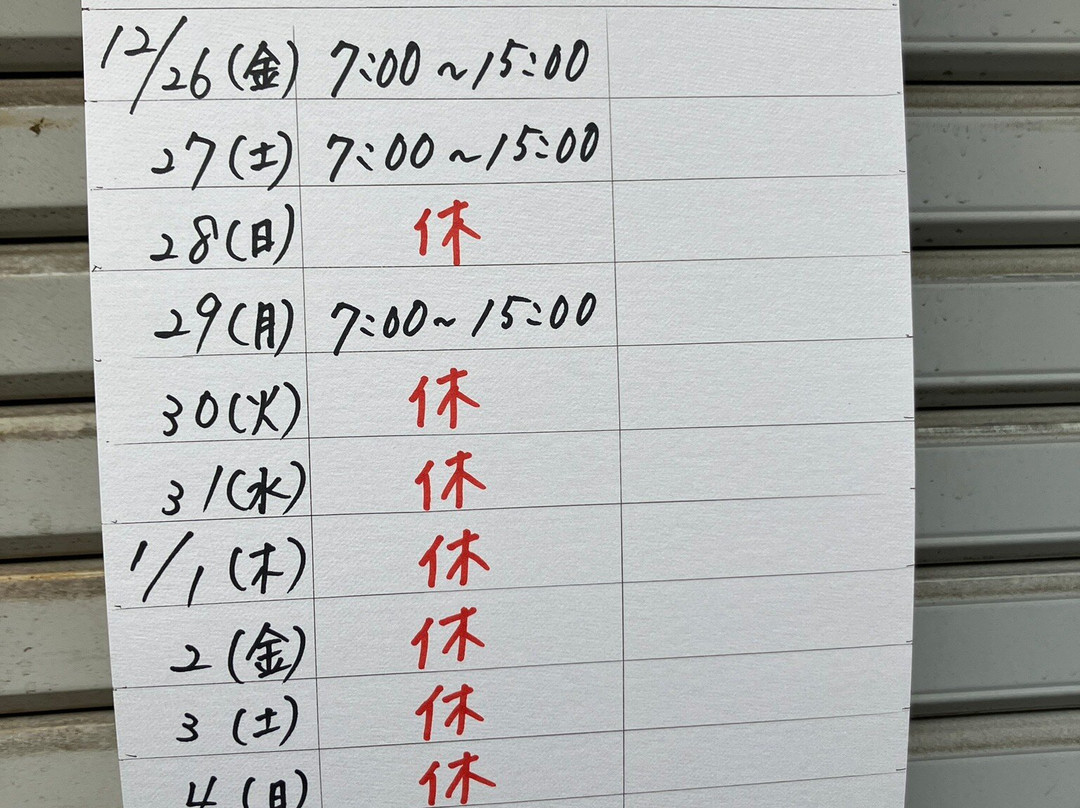 12/26(金) 7:00~15:00
27(土) 7:00~15:00
28(日) 休
29(月) 7:00~15:00
30(火) 休
31(水) 休
1/1(木) 休
2(金) 休
3(土) 休
4(日) 休